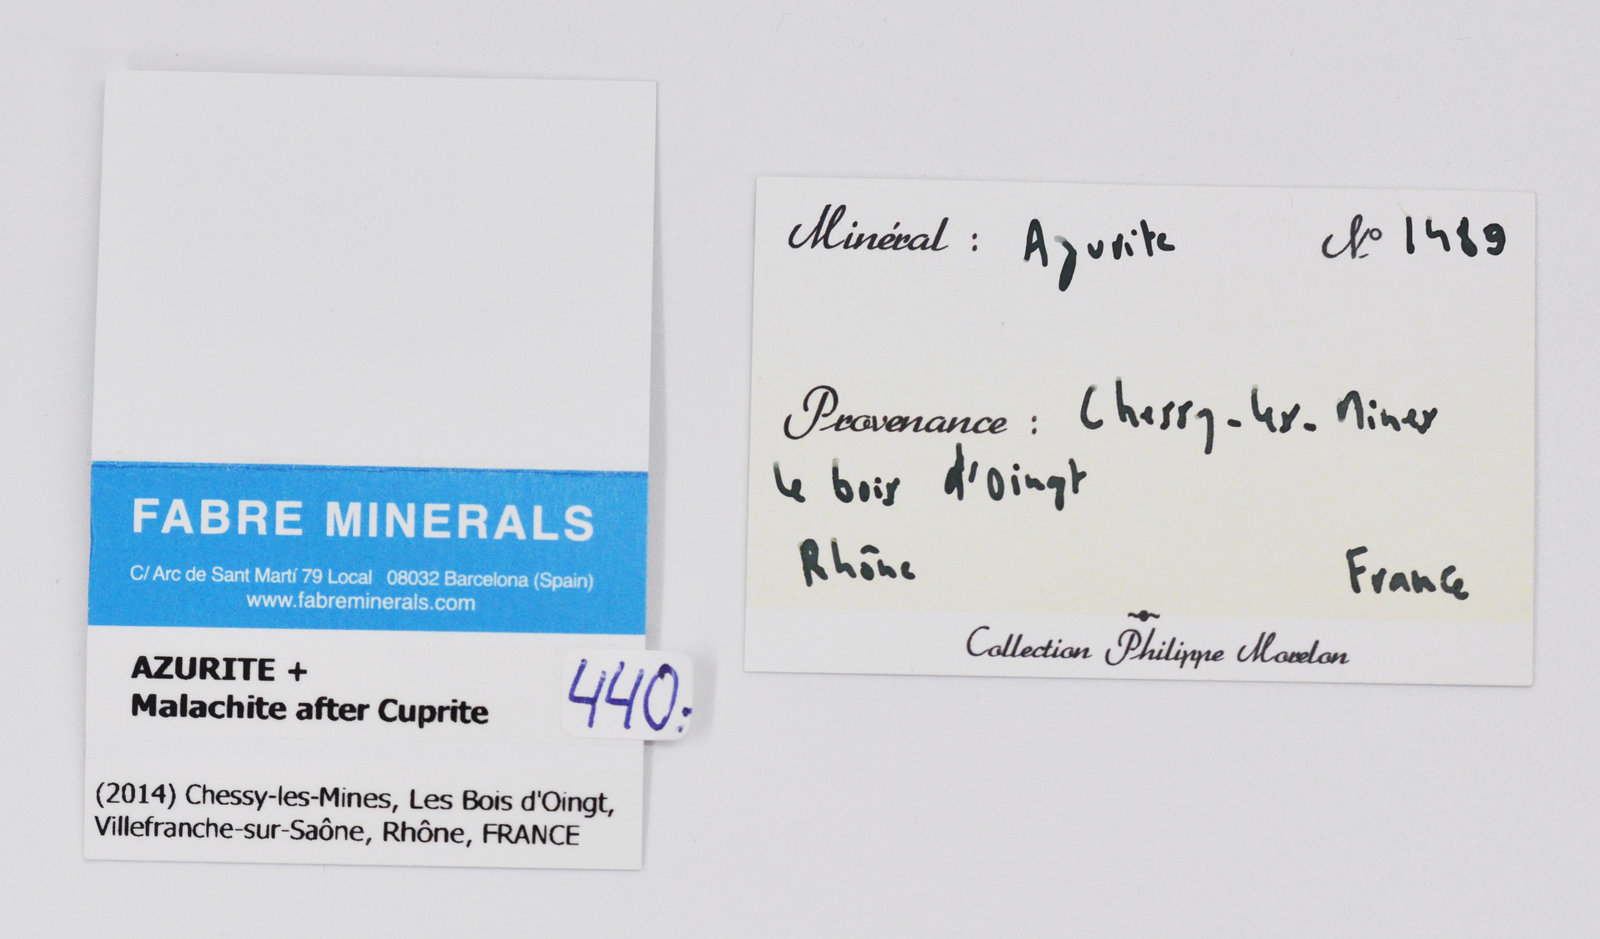 FABRE MINERALS
C/ Arc de Sant Martí 79 Local 08032 Barcelona (Spain)
www.fabreminerals.com
AZURITE +
Malachite after Cuprite
440.-
(2014) Chessy-les-Mines, Les Bois d'Oingt,
Villefranche-sur-Saône, Rhône, FRANCE
Minéral : Azurite N° 1489
Provenance : Chessy-les-Mines
le bois d'Oingt
Rhône France
Collection Philippe Morelon